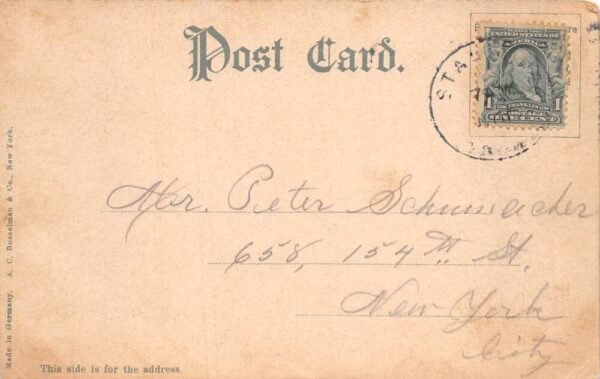 Post Card.
STA
UNITED STATES OF
AMERICA
1 FRANKLIN 1
POSTAGE
ONE CENT
Mr. Peter Schumacher
658, 154th St.
New York
City
This side is for the address.
Made in Germany. A. C. Bosselman & Co., New York.